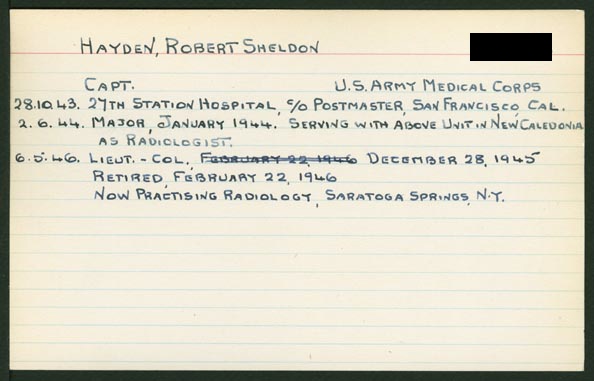 HAYDEN, ROBERT SHELDON
CAPT. U.S. ARMY MEDICAL CORPS
28.10.43. 27TH STATION HOSPITAL, C/O POSTMASTER, SAN FRANCISCO, CAL.
2.6.44. MAJOR, JANUARY 1944. SERVING WITH ABOVE UNIT IN NEW CALEDONIA
AS RADIOLOGIST.
6.5.46. LIEUT.-COL., FEBRUARY 22, 1946 DECEMBER 28, 1945
RETIRED, FEBRUARY 22, 1946
NOW PRACTISING RADIOLOGY, SARATOGA SPRINGS, N.Y.